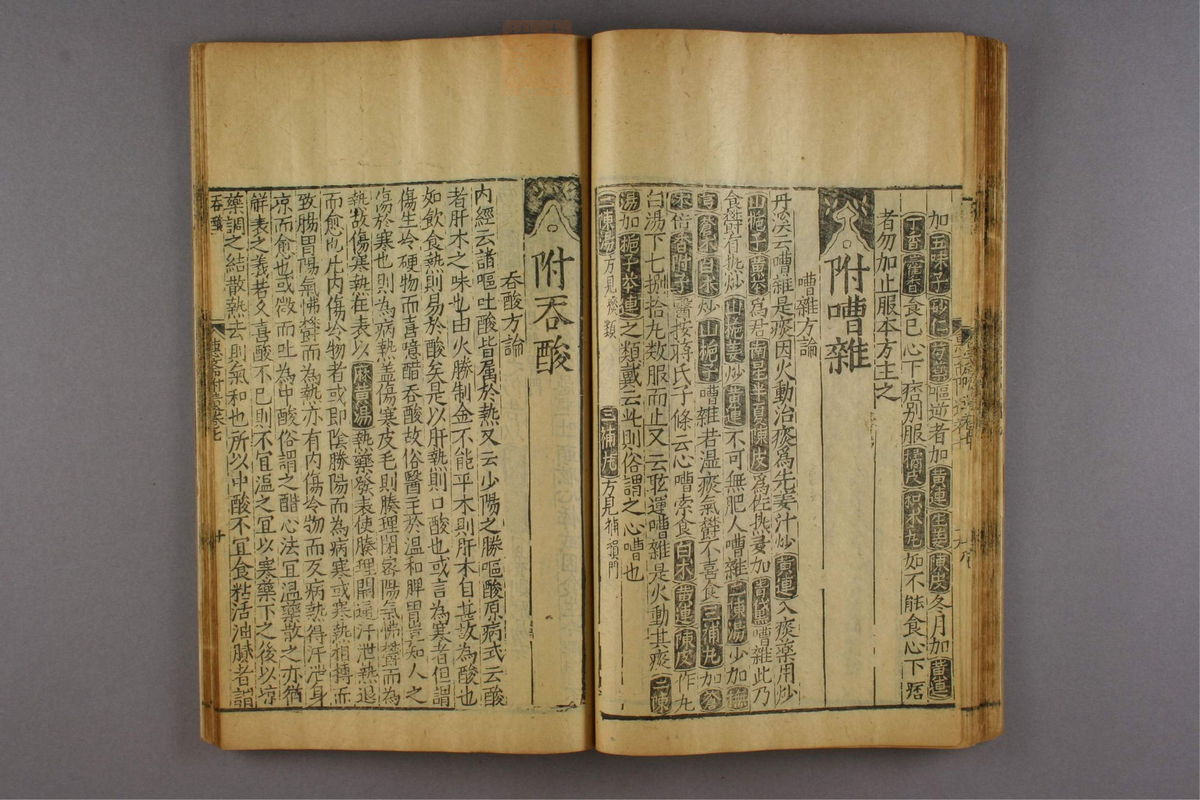 加五味子砂仁芎藭嘔逆者加黃連生姜陳皮冬月加黃連
丁香藿香食已心下痞別服橘皮枳朮丸如不能食心下痞
者勿加止服本方主之
附嘈雜
嘈雜方論
丹溪云嘈雜是痰因火動治痰爲先姜汁炒黃連入痰藥用炒
山梔子黃芩爲君南星半夏陳皮爲佐熱多加青黛嘈雜此乃
食鬱有熱炒山梔姜炒黃連不可無肥人嘈雜二陳湯少加撫
芎蒼朮白朮炒山梔子嘈雜若温痰氣欝不喜食三補丸加蒼
朮倍香附子醫按蔣氏子條云心嘈索食白朮黃連陳皮作丸
白湯下七捌拾丸数服而止又云眩運嘈雜是火動其痰二陳
湯加梔子芩連之類戴云此則俗謂之心嘈也
二陳湯方見痰類 三補丸方見補損門
附吞酸
吞酸方論
內經云諸嘔吐酸皆屬於熱又云少陽之勝嘔酸原病式云酸
者肝木之味也由火勝制金不能乎木則肝木自甚故為酸也
如飲食熱則易於酸矣是以肝熱則口酸也或言為寒者但謂
傷生冷硬物而喜噫醋吞酸故俗醫主於温和脾胃豈知人之
傷於寒也則為病熱盖傷寒皮毛則腠理閉宻陽氣怫欝而為
熱故傷寒熱在表以麻黃湯熱藥發表使腠理開通汗泄熱退
而愈也凡內傷冷物者或即陰勝陽而為病寒或寒熱相搏而
致腸胃陽氣怫欝而為熱亦有內傷冷物而反病熱得汗泄身
凉而愈也或微而吐為中酸俗謂之醋心法宜温藥散之亦猶
觧表之義若乆喜酸不已則不宜温之宜以寒藥下之後以凉
藥調之結散熱去則氣和也所以中酸不宜食粘活油膩者謂
吞酸